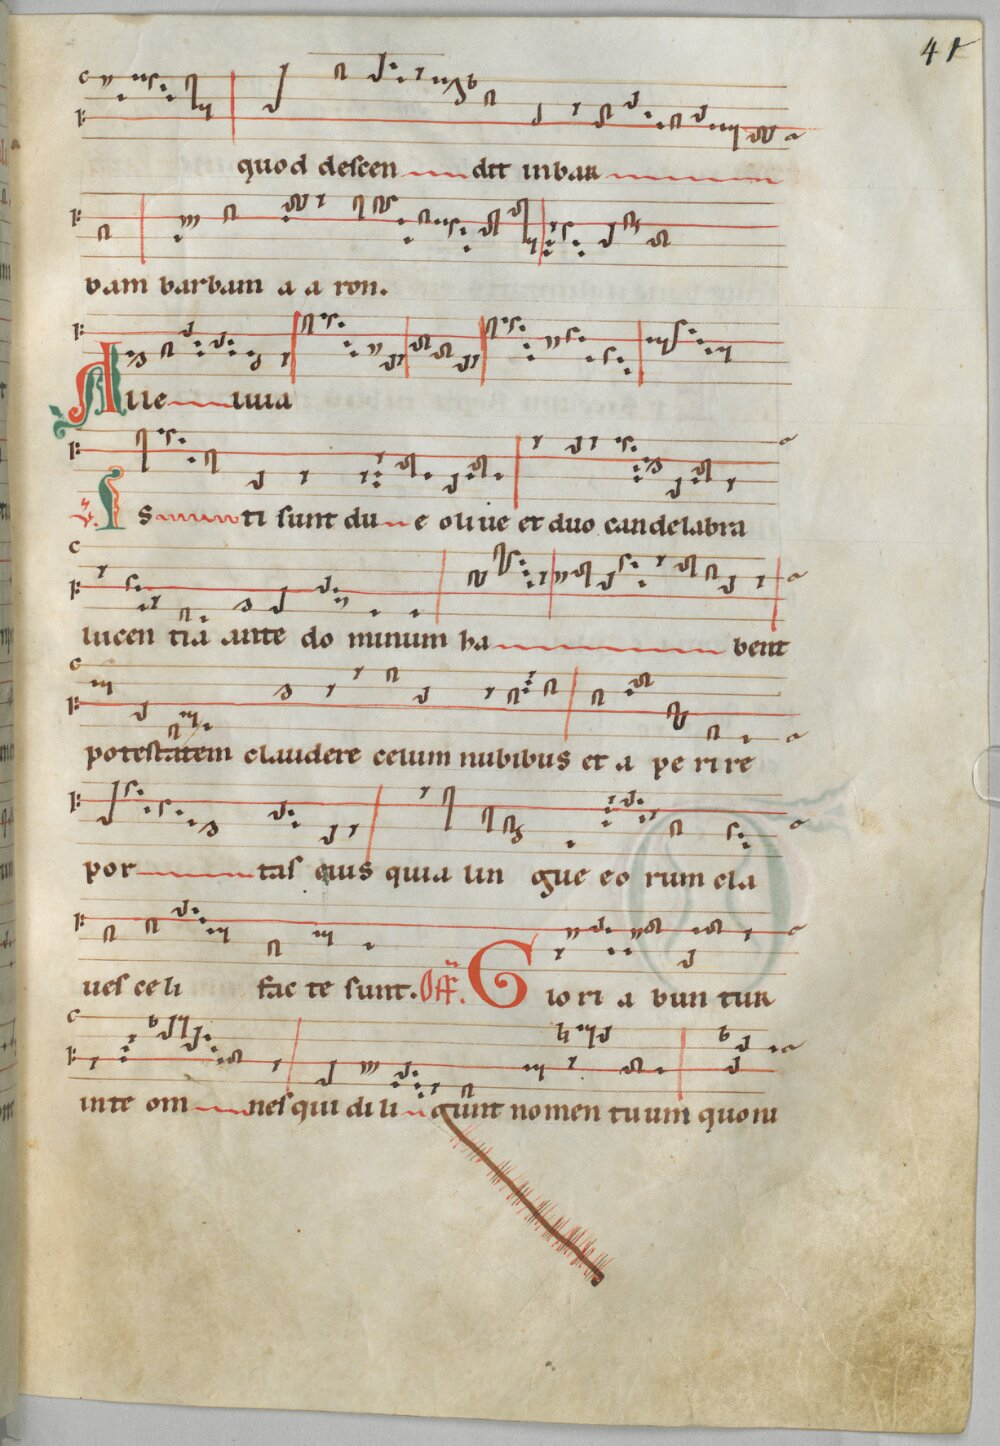 41
quod descen dit in bar
bam barbam a a ron.
Alle luia
℣. Is ti sunt du e oliue et duo candelabra
lucen tia ante do minum ha bent
potestatem claudere celum nubibus et a pe rire
por tas eius quia lin gue eo rum cla
ues celi fac te sunt. Off. Glo ri a bun tur
in te om nes qui dili gunt nomen tuum quoni